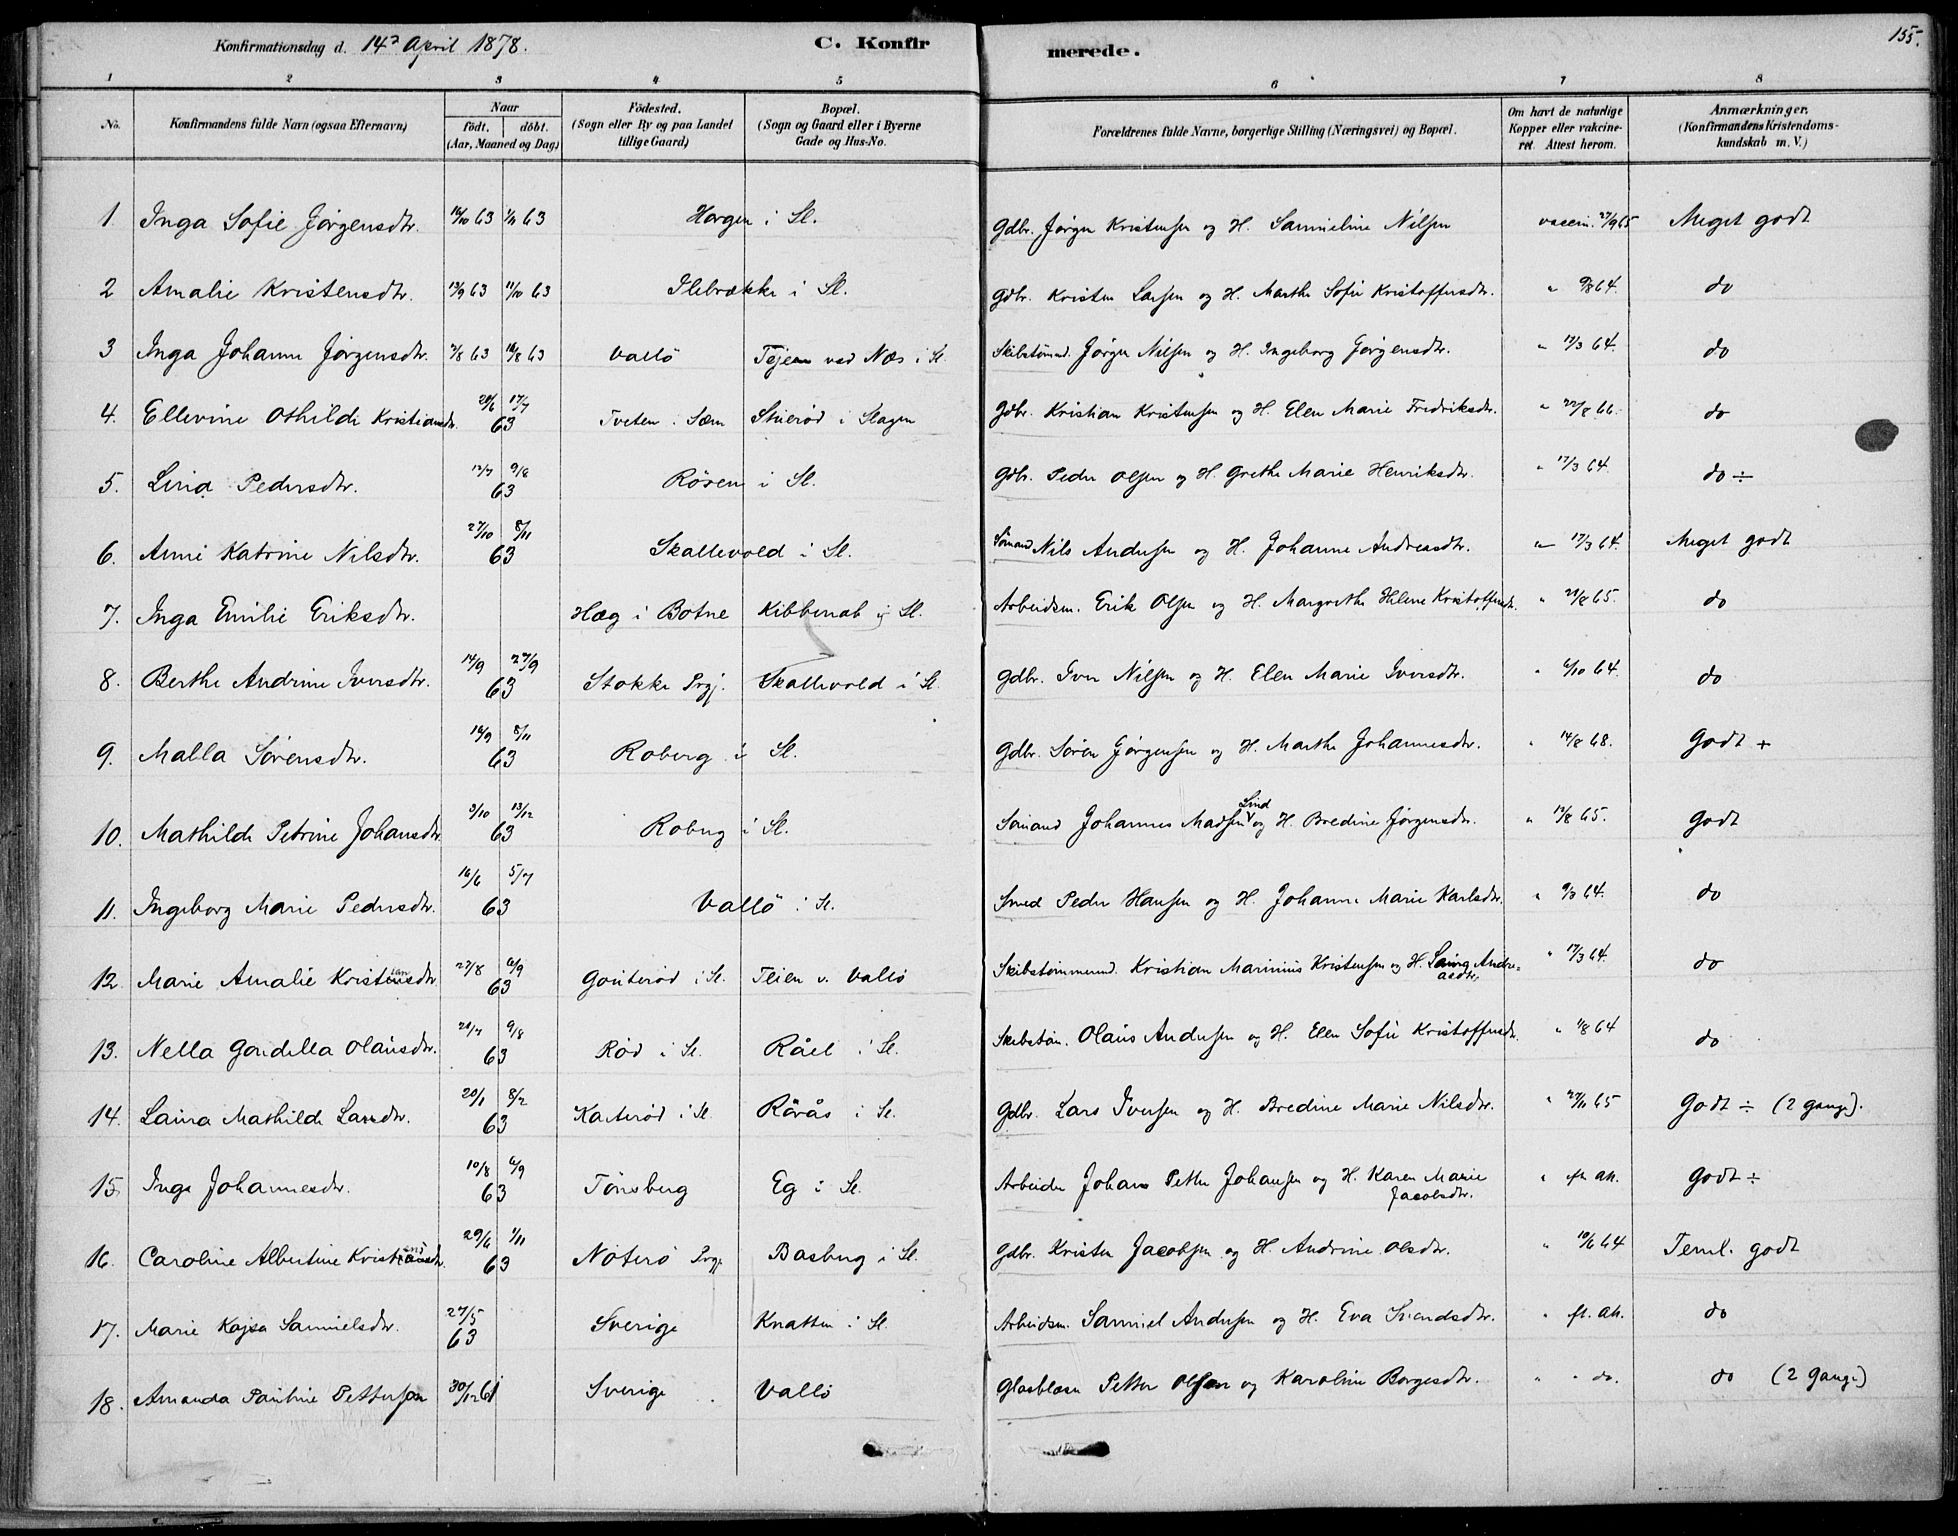 Konfirmationsdag d. 14de April 1878. C. Konfirmerede. 155.
1 2 3 4 5 6 7 8
No. Konfirmandens fulde Navn (ogsaa Efternavn) Naar födt. döbt. (Aar, Maaned og Dag) Födested. (Sogn eller By og paa Landet tillige Gaard) Bopæl. (Sogn og Gaard eller i Byerne Gade og Hus-No. Forældrenes fulde Navne, borgerlige Stilling (Næringsvei) og Bopæl. Om havt de naturlige Kopper eller vakcineret. Attest herom. Anmærkninger. (Konfirmandens Kristendomskundskab m. V.)
1 Inga Sofie Jørgensdtr. 16/10 63 1/11 63 Horgen i Sl. Gdbr. Jørgen Kristensen og H. Samueline Nilsen vaccin. 27/9 65 Meget godt
2 Amalie Kristensdtr. 13/9 63 11/10 63 Ilebrække i Sl. Gdbr. Kristen Larsen og H. Marthe Sofie Kristoffersdtr. " 9/8 64. do
3 Inga Johanne Jørgensdtr. 2/8 63 16/8 63 Vallö Tejen ved Næs i Sl. Skibstømmd. Jørgen Nilsen og H. Ingeborg Jørgensdtr. " 17/3 64. do
4. Ellevine Othilde Kristiansdtr. 20/6 17/7 63 Tveten i Sem Stuerød i Slagen Gdbr. Kristian Kristensen og H. Elen Marie Fredriksdtr. " 22/8 66. do
5. Lina Pedersdtr. 12/7 9/8 63 Røren i Sl. Gdbr. Peder Olsen og H. Grethe Marie Henriksdtr. " 17/3 64. do ÷
6. Anne Katrine Nilsdtr. 27/10 8/11 63 Skallevold i Sl. Sømand Nils Andersen og H. Johanne Andreasdtr. " 17/3 64. Meget godt
7. Inga Emilie Eriksdtr. Hæg i Botne Kibbenab i Sl. Arbeidsm. Erik Olsen og H. Margrethe Helene Kristoffersdtr. " 21/8 65. do
8. Berthe Andrine Iversdtr. 14/9 27/9 63 Stokke Prgj. Skallevold i Sl. Gdbr. Iver Nilsen og H. Elen Marie Iversdtr. " 6/10 64. do
9. Malla Sørensdtr. 16/9 8/11 63 Roberg i Sl. Gdbr. Søren Jørgensen og H. Marthe Johannesdtr. " 14/8 68. Godt +
10. Mathilde Petrine Johansdtr 3/10 13/12 63 Roberg i Sl. Sømand Johannes Madsen Lind og H. Bredine Jørgensdtr. " 12/8 65. Godt
11. Ingeborg Marie Pedersdtr. 16/6 5/7 63 Vallö i Sl. Smed Peder Hansen og H. Johanne Marie Karlsdtr. " 9/3 64. do
12. Marie Amalie Kristiansdtr. 23/8 6/9 63 Gouterød i Sl. Teien v. Vallö Skibstømmermd. Kristian Marinius Kristensen og H. Laura Andreasdtr. " 17/3 64. do
13. Nella Gondella Olausdtr. 20/7 9/8 63 Rød i Sl. Råel i Sl. Skibstøm. Olaus Andersen og H. Elen Sofie Kristoffersdtr. " 1/8 64 do
14. Laura Mathilde Larsdtr. 20/1 8/2 63 Katerød i Sl. Rörås i Sl. Gdbr. Lars Iversen og H. Bredine Marie Nilsdtr. " 27/11 65 Godt ÷ (2 gange).
15 Inga Johannesdtr. 10/8 6/9 63 Tønsberg Eg i Sl. Arbeider Johans Petter Johansen og H. Karen Marie Jacobsdtr. " ft. att. Godt ÷
16. Caroline Albertine Kristensdtr. 29/6 1/11 63 Nöterö Prgj. Basberg i Sl. Gdbr. Kristen Jacobsen og H. Andrine Olsdtr. " 10/6 64 Teml. godt
17. Marie Kajsa Samuelsdtr. 27/5 63 Sverige Knatten i Sl. Arbeidsm. Samuel Andersen og H. Eva Svendsdtr. " ft. att. do
18. Amanda Pauline Petterson 30/12 61 Sverige Vallö Glasblæser Petter Olsson og Karoline Borgesdtr. " " do. do (2 Gange)